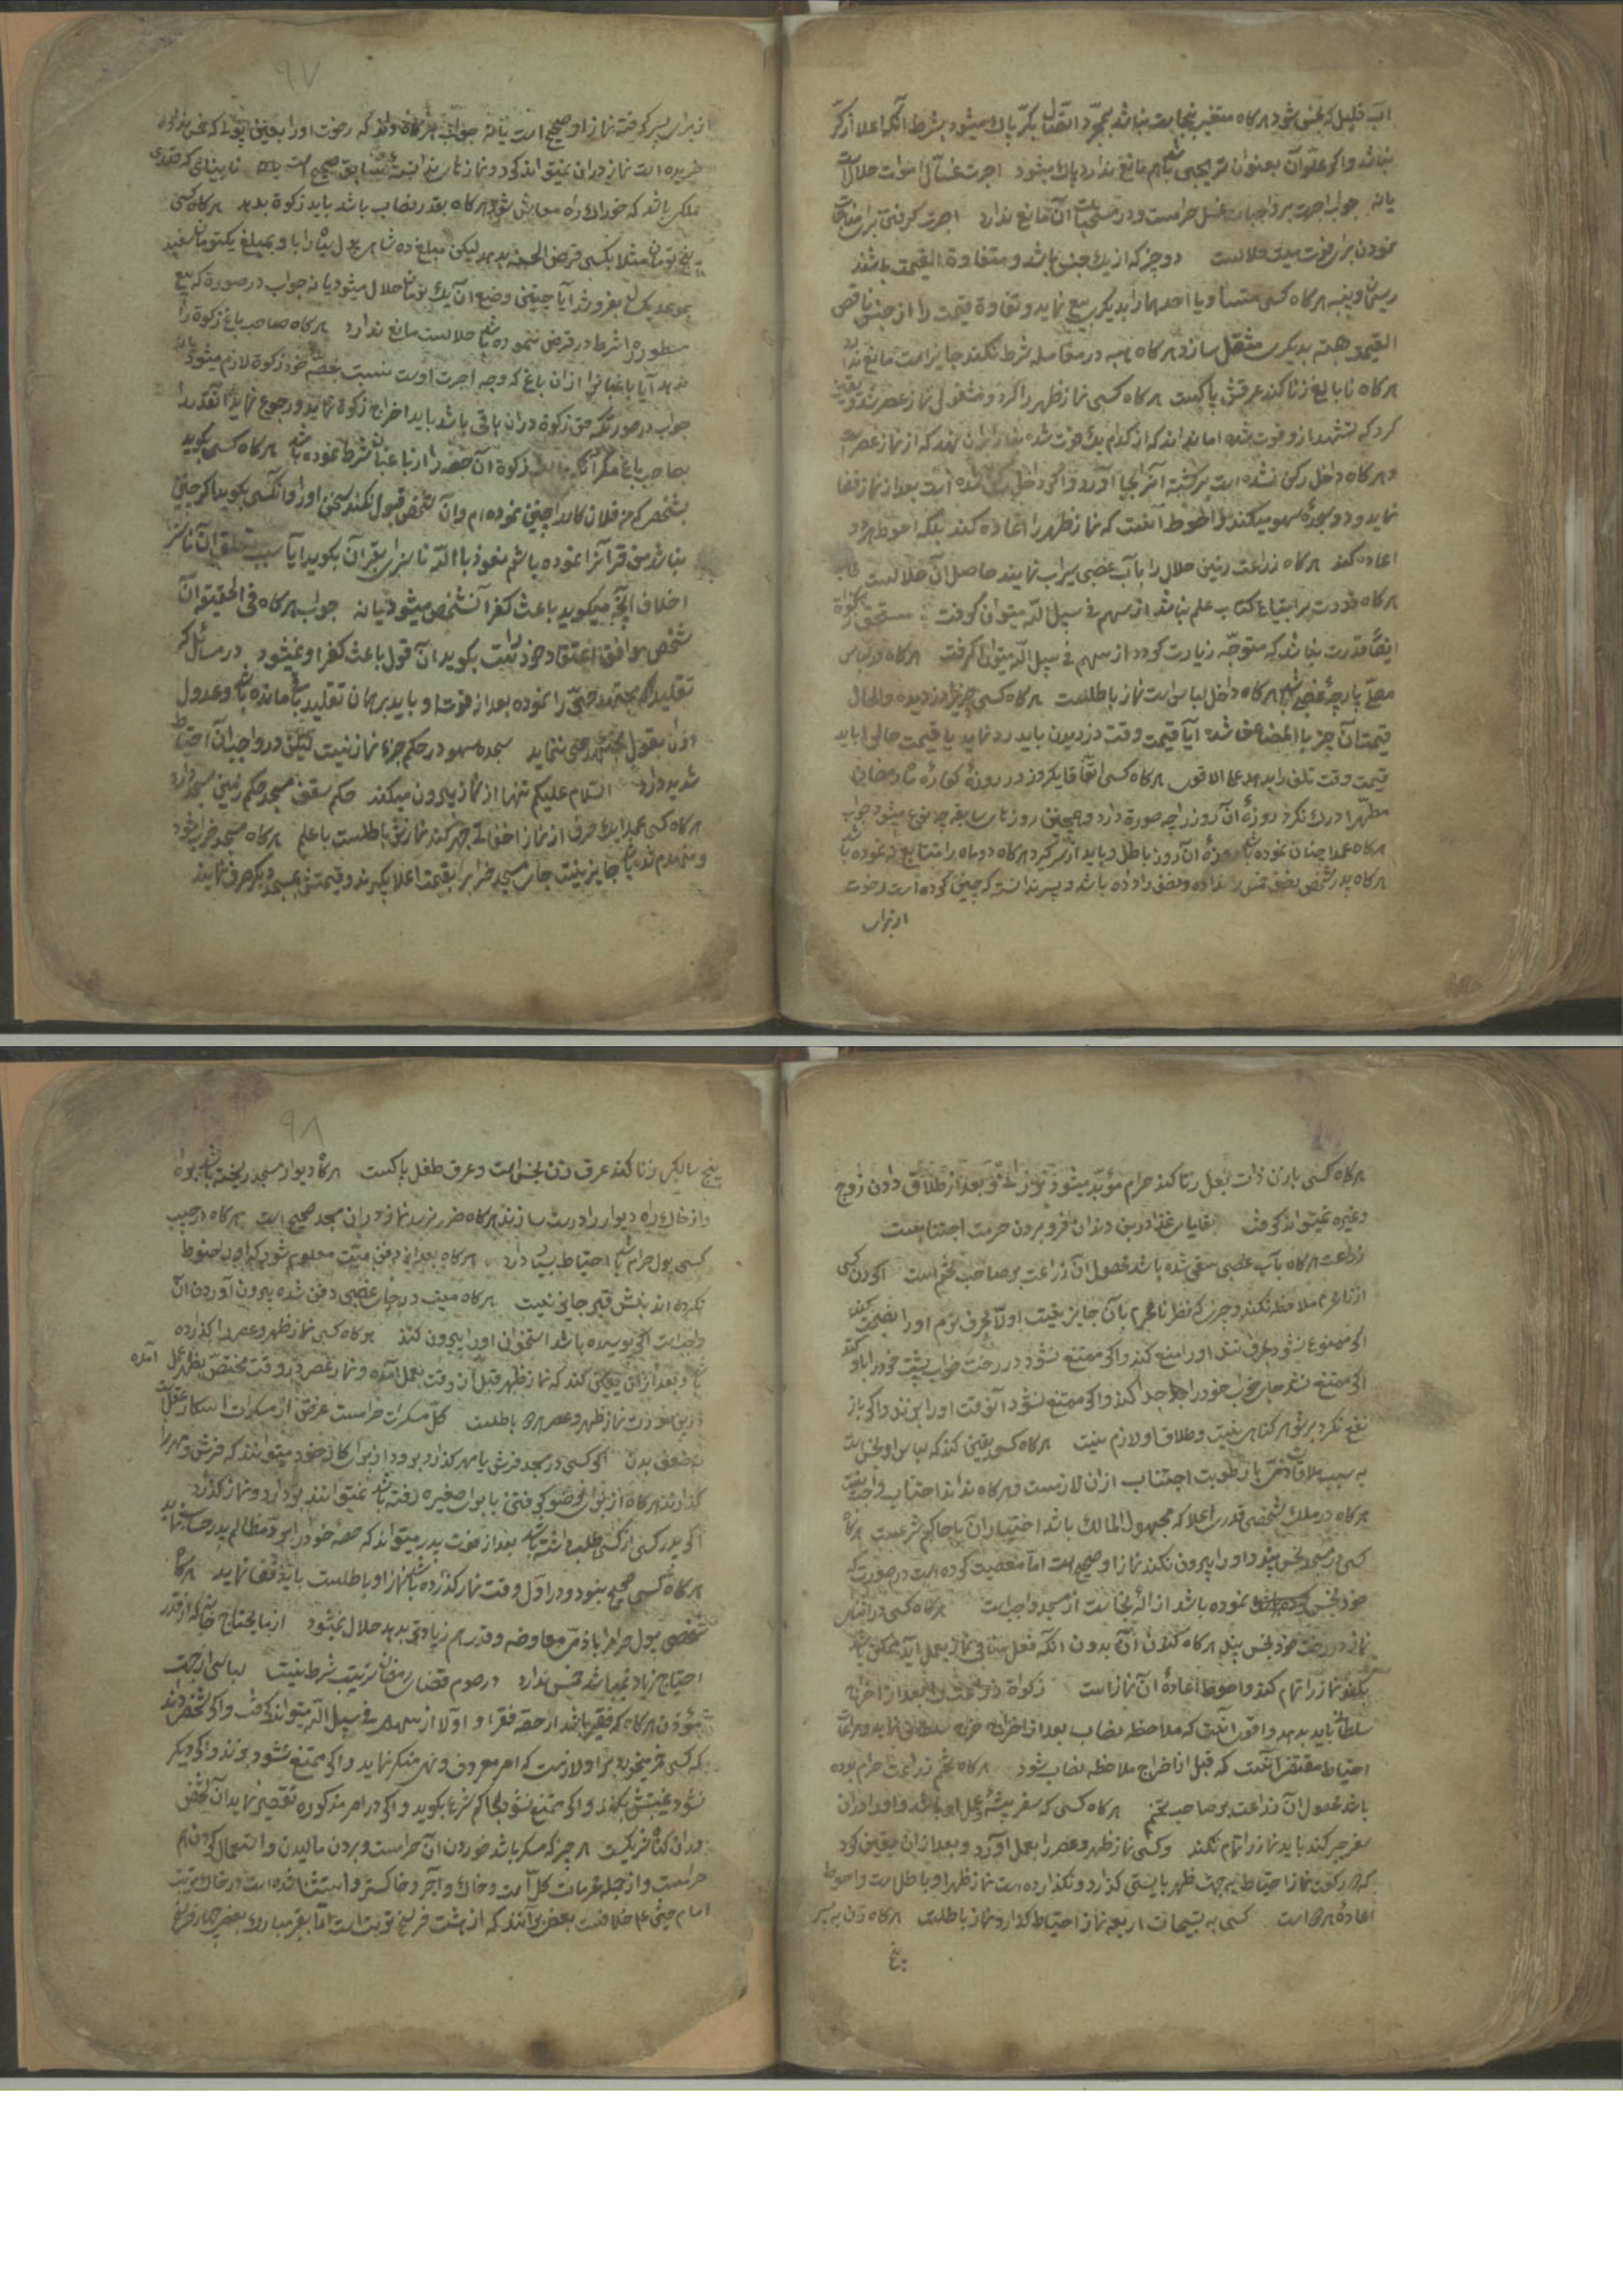 آب قلیل که نجس شود هرگاه متغیر بنجاست نباشد بمجرد اتصال بکر پاک میشود بشرط آنکه اعلا از کر
نباشد واکر علو آن بعنوان تدریجی باشد هم مانع ندارد پاک میشود اجرت غسال اموات حلال است
یا نه جواب اجرت بر واجبات غسل حرامست و در مستحبات آن مانع ندارد اجرت کرفتن برای
نمودن برای فوت میت حلالست دو چیز که از یک جنس باشد و متفاوة القیمت باشند
ریسمان و پنبه هرکاه کسی و یا احدهما را بدیکری بیع نماید و تفاوة قیمت را از جنس ناقص
القیمة هبه بدیکری منتقل سازد هرکاه هبه در معامله شرط نکند جایز است مانع ندارد
هرکاه نابالغ زنا کند عرقش پاکست هرکاه کسی نماز ظهر را کرد و مشغولی نماز عصر شد و یقین
کرد که تشهد از او فوت شده اما نداند که از کدام یک فوت شده که از نماز عصر است
و هرکاه داخل رکن نشده است برکشته آنرا بجا آورد و اکر داخل رکن شده است بعد از نماز قضا
نماید و دو سجدهٔ سهو میکند و احوط آنست که نماز ظهر را اعاده کند بلکه احوط هر دو
اعاده کند هرکاه زراعت زمین حلال را بآب غصبی سیراب نمایند حاصل آن حلالست
هرکاه قدرت بر ابتیاع کتاب علم نباشد از سهم فی سبیل الله میتوان کرفت مستحق زکوة
ایضا قدرت نباشد که متوجه زیارت کردد از سهم فی سبیل الله میتوان کرفت هرکاه در لباس
مصلی پارچه غصبی باشد هرکاه داخل لباس است نماز باطلست هرکاه کسی چیزی دزدیده والحال
قیمت آن چیز باالمضاعف شده آیا قیمت وقت دزدیدن باید رد نماید یا قیمت حالی را باید
قیمت وقت تلف را بدهد علی الاقوی هرکاه کسی اتفاقا یکروز در روزهٔ کفارهٔ ماه رمضان
مطهرا درک نکرد روزهٔ آن روز را چه صورة دارد و همچنین روزهای سابقر چه نوع میشود جواب
هرکاه عمدا چنان نموده باشد روزه آن روز باطل و باید از سر کیرد هرکاه دو ماه را متتابع نه نموده باشد
هرکاه پدر شخص بعض خمس را نداده و بعضی را داده باشد و پسر ندانسته که چنین کرده است رخوت
از برای
۹۷
از برای پسر کرفته نماز او صحیح است یا نه جواب هرکاه داند که رخوت او را بعین پولی که خمس نداده
خریده است نماز در آن نمیتواند کرد و نماز تا ندانسته سابق صحیح است نابینائی که قدری
ملکی باشد که خوراک راه معاش شود هرکاه بقدر نصاب باشد باید زکوة بدهد هرکاه کسی
پنج تومان مثلا بکسی قرض الحسنه بدهد لیکن مبلغ ده شاهی پول سیاه را با و بمبلغ یکتومان سفید
بموعد یکساله بفروشد آیا چنین وضع آن یک تومان حلال میشود یا نه جواب در صورة که بیع
مسطوره را شرط در قرض ننموده باشد حلالست مانع ندارد هرکاه صاحب باغ زکوة را
ندهد آیا باغبان را از آن باغ که وجه اجرت اوست نسبت بحصه خود زکوة لازم میشود یا نه
جواب در صورتیکه حق زکوة در آن باقی باشد باید اخراج زکوة نماید و رجوع نماید آنقدر را
بصاحب باغ مکر آنکه زکوة آن حصه را از باغبان شرط نموده باشد هرکاه کسی بکوید
بشخصی که من فلان کار را چنین نموده ام و آن شخص قبول نکند سخن او را و آنکس بکوید اکر چنین
نباشد من قرآنرا نموده باشم نعوذ باالله ناسزای بقرآن بکوید آیا سبب آن ناسزا
اخلاف آنچه میکوید باعث کفر آنشخص میشود یا نه جواب هرکاه فی الحقیقه آن
شخص موافق اعتقاد خود نیت بکوید آن قول باعث کفر او نمیشود در مسائل که
تقلید مجتهد حی را نموده بعد از فوت او باید بر همان تقلید باقی مانده باشد و عدول
از آن بقول مجتهد حی ننماید سجده سهو در حکم جزء نماز نیست لیکن در واجبات آن احتیاط
شدید دارد السلام علیکم تنها از نماز بیرون میکند حکم سقف مسجد حکم زمین مسجد دارد
هرکاه کسی عمدا یک حرف از نماز اخفاتی جهر کند نمازش باطلست با علم هرکاه مسجد خراب شود
و منهدم شود جایز نیست جای مسجد خراب را بقیمت اعلا بکیرند و قیمتش بمسجد دیکر صرف نمایند
هرکاه کسی با زن ذات بعل زنا کند حرام مؤبد میشود بر زانی و بعد از طلاق دادن زوج
وغیره نمیتواند کرفت بقایای غذا در بن دندان فرو بردن حرمت اجتنابست
زراعت هرکاه بآب غصبی سقی شده باشد محصول آن زراعت بر صاحب تخم است اکر زن کسی
از نامحرم ملاحظه نکند و چیزی که نظر نامحرم بآن جایز نیست اولا بحرف نرم او را نصیحت کند
اکر ممنوع نشود بحرف تند او را منع کند واکر ممتنع نشود در رخت خواب پشت خود را باو کند
اکر ممتنع نشد جای خواب خود را جدا کند واکر ممتنع نشود آنوقت او را بزند واکر باز
نفع نکرد بر شوهر کناهی نیست و طلاق او لازم نیست هرکاه کسی یقین کند که لباس او نجس است
به سبب ملاقات ذمی با رطوبت اجتناب از آن لازمست و هرکاه نداند اجتناب واجب نیست
هرکاه در ملک شخصی قدری املاک مجهول المالک باشد اختیار آن باحاکم شرعست هرکاه
کسی در مسجد نجس بیند و او را بیرون نکند نماز او صحیح است اما معصیت کرده است در صورت که
خود نجس نموده باشد ازالهٔ نجاست از مسجد واجب است هرکاه کسی در اثنای
نماز در رخت خود نجس بیند هرکاه کندن آن بدون آنکه فعل منافی نماز بعمل آید ممکن باشد
بکند و نماز را تمام کند و احوط اعادهٔ آن نماز است زکوة زراعت را بعد از اخراج
سلطان باید بدهد و اقوی آنست که ملاحظه نصاب بعد از اخراج خرج سلطانی نماید و مراعات
احتیاط مقتضی آنست که قبل از اخراج ملاحظه نصاب شود هرکاه تخم زراعت حرام بوده
باشد محصول آن زراعت بر صاحب تخم هرکاه کسی که سفر پیشه و عمل او باشد و او در آن
سفر جبر کند باید نماز را تمام نکند وکسی نماز ظهر و عصر را بعمل آورد و بعد از آن یقین کرد
که دو رکعت نماز احتیاط بجهت ظهر بایستی کذارد و نکذارده است نماز ظهر او باطل است و احوط
اعادهٔ هر دو است کسی به تسبیحات اربعه نماز احتیاط کذارد نماز باطلست هرکاه زن به پسر
پنج
۹۸
پنج ساله زنا کند عرق زن نجس است و عرق طفل پاکست هرکاه دیوار مسجد ریخته باشد
و از خاک راه دیوار را درست سازند هرکاه ضرر نرسد نماز در آن مسجد صحیح است هرکاه در جیب
کسی پول حرام باشد احتیاط بسیار دارد هرکاه بعد از دفن میت معلوم شود که او را حنوط
نکرده اند نبش قبر جایز نیست هرکاه میت در جای غصبی دفن شده بیرون آوردن آن
واجبست اکر پوسیده باشد استخوان او را بیرون کنند هرکاه کسی نماز ظهر و عصر را کذارده
باشد و بعد از آن یقین کند که نماز ظهر قبل از وقت بعمل آمده و نماز عصر در وقت مختص بظهر بعمل آمده
در این صورت نماز ظهر و عصر هر دو باطلست کل مسکرات حرامست غرض از مسکرات اسکار عقلست
نه ضعف بدن اکر کسی در مسجد فرش یا مهر کذارد بود از برای کار خود میتوانند که فرش و مهر را
کذارند هرکاه از برای وضو کرفتن یا بول صغیره رفته باشد نمیتوانند بردارد و نماز کذارد
اکر پدر کسی از کسی طلب داشته باشد بعد از فوت پدر میتواند که حصهٔ خود را برد مظالم پدر حساب نماید
هرکاه کسی صحیح نبود و در اول وقت نماز کذارده باشد نماز او باطلست باید قضا نماید هرکاه
شخصی پول حرام را با ذمی معاوضه و قدری هم زیادتی بدهد حلال نمیشود از مایحتاج خانه که از قدر
احتیاج زیاد نمیباشد خمس ندارد در صوم قضای رمضان ترتیب شرط نیست لباسی از جهت
مؤذن هرکاه که فقیر باشد از حصهٔ فقرا و اولا از سهم فی سبیل الله میتوانند کرفت واکر شخصی داند
که کسی قمر میخورد بر او لازمست که امر معروف و نهی منکر نماید واکر ممتنع نشود بزند واکر دیکر
نشود غیبتش بکند واکر ممتنع نشود بحاکم شرع بکوید واکر در امر مذکوره تقصیر نماید آن شخص
در آن کناه شریکست هر چیز که مسکر باشد خوردن آن حرامست و بر بدن مالیدن و استعمال کردن هم
حرامست و از جمله محرمات کل است و خاک و آجر و خاکستر و استثنا شده است در خاک تربت
امام حسین ع خلافست بعض برآنند که از هشت فرسخ تربت است اما بقر مبارک و بعض چهار فرسخ